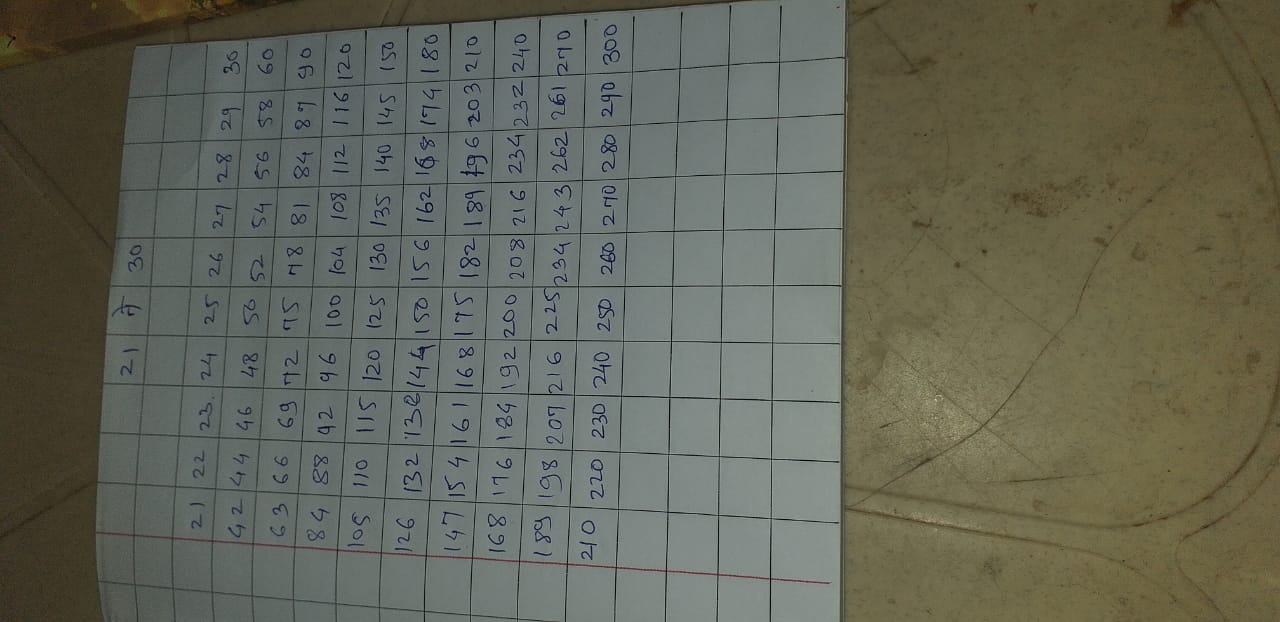 21 30
21 22 23. 24 25 26 27 28 29 30
42 44 46 48 50 52 54 56 58 60
63 66 69 72 75 78 81 84 87 90
84 88 92 96 100 104 108 112 116 120
105 110 115 120 125 130 135 140 145 150
126 132 138 144 150 156 162 168 174 180
147 154 161 168 175 182 189 196 203 210
168 176 184 192 200 208 216 234 232 240
189 198 207 216 225 234 243 262 261 270
210 220 230 240 250 260 270 280 290 300